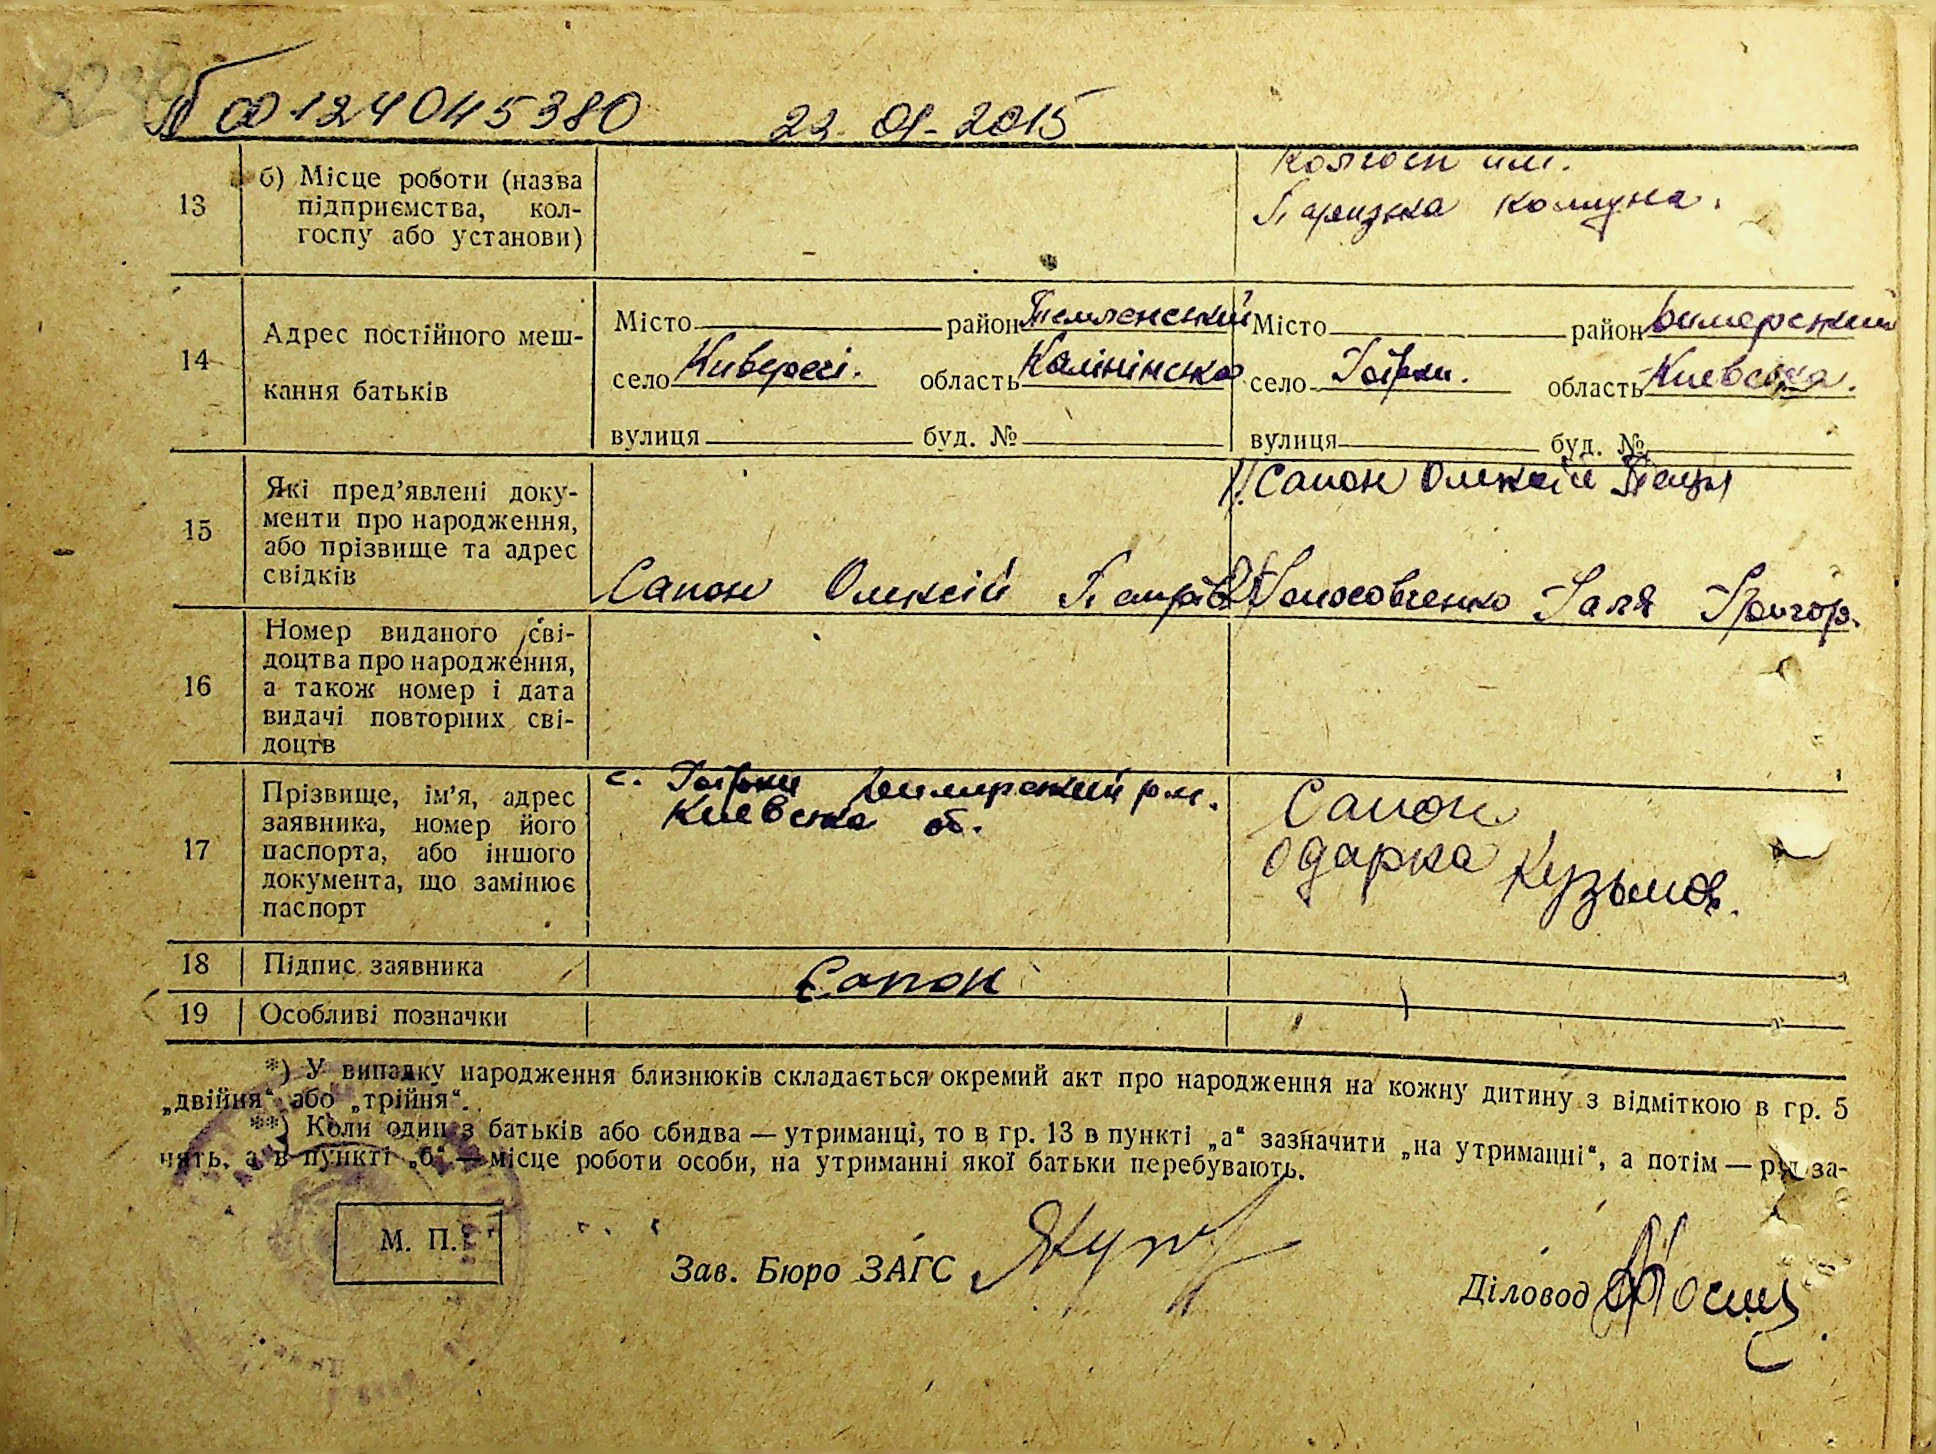 00124045380 22.01-2015
13
б) Місце роботи (назва
підприємства, кол-
госпу або установи)
Колгосп им.
Паризька Комуна.
14
Адрес постійного меш-
кання батьків
Місто район
село область Калінінська
вулиця буд. №
Місто район Димерський
село Гаврки. область Киевська.
вулиця буд. №
15
Які пред’явлені доку-
менти про народження,
або прізвище та адрес
свідків
Сапон Олексій
1. Сапон Олексій
Галя Григор.
16
Номер виданого сві-
доцтва про народження,
а також номер і дата
видачі повторних сві-
доцтв
17
Прізвище, ім’я, адрес
заявника, номер його
паспорта, або іншого
документа, що замінює
паспорт
с. Димирський
Киевска об.
Сапон
Одарка Кузьмов.
18
Підпис заявника
Сапон
19
Особливі позначки
*) У випадку народження близнюків складається окремий акт про народження на кожну дитину з відміткою в гр. 5
„двійня“ або „трійня“.
**) Коли один з батьків або обидва — утриманці, то в гр. 13 в пункті „а“ зазначити „на утриманні“, а потім — рід за-
нять, а в пункті „б“ — місце роботи особи, на утриманні якої батьки перебувають.
М. П.
Зав. Бюро ЗАГС
Діловод